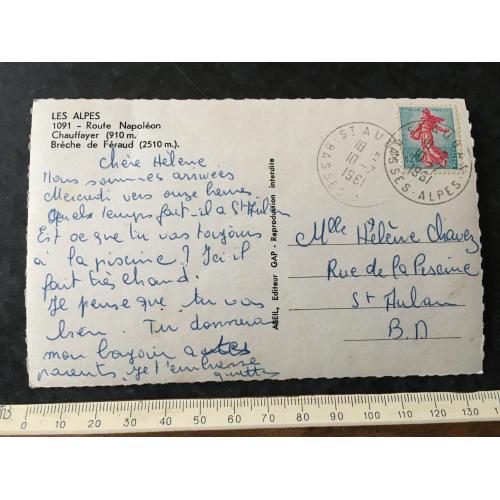 LES ALPES
1091 - Route Napoléon
Chauffayer (910 m.
Brèche de Féraud (2510 m.).
Chére Hélène
Nous sommes arrivées
Mercredi vers onze heures
Quels temps fait-il a St Aulan
Est ce que tu vas toujours
à la piscine ? Ici il
fait très chaud.
Je pense que tu vas
bien. Tu donnera
mon bonjour a tes
parents. Je t'embrasse
ABEIL, Editeur GAP - Reproduction interdite
ST AU
18 H
10 - 7
1961
BASSES-A
18 H
1961
BASSES-ALPES
0,20
Mlle Hélène Chavez
Rue de la Piscine
St Aulan
B.D
0 10 20 30 40 50 60 70 80 90 100 110 120 130 140